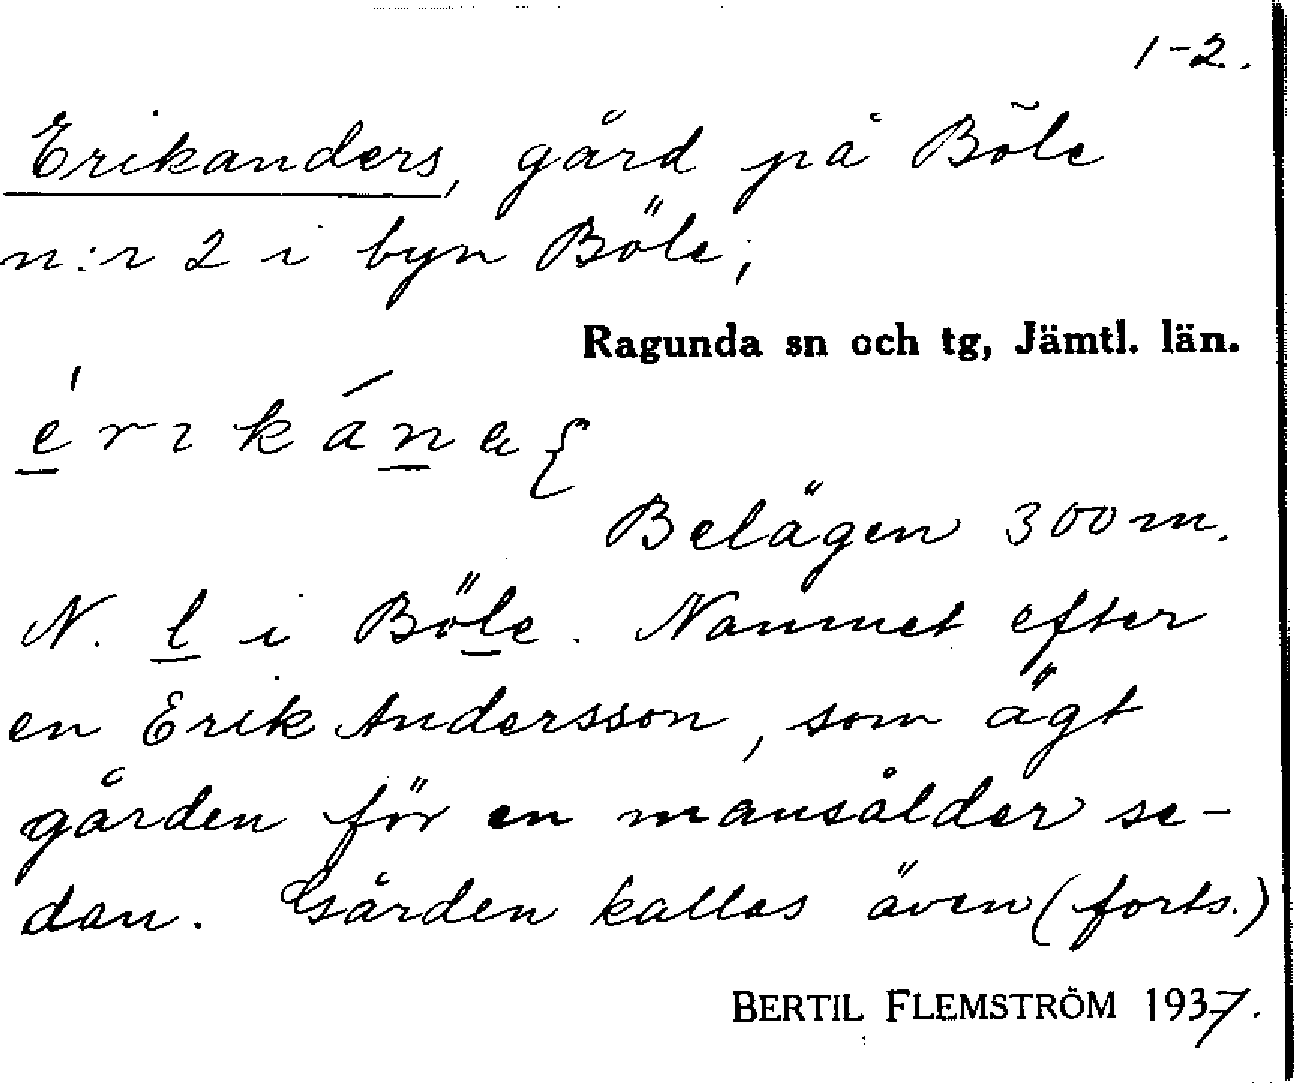 1-2.
Erikanders, gård på Böle
n:r 2 i byn Böle;
Ragunda sn och tg, Jämtl. län.
Belägen 300 m.
N. l i Böle. Namnet efter
en Erik Andersson, som ägt
gården för en mansålder se-
dan. Gården kallas även (forts.)
BERTIL FLEMSTRÖM 1937.